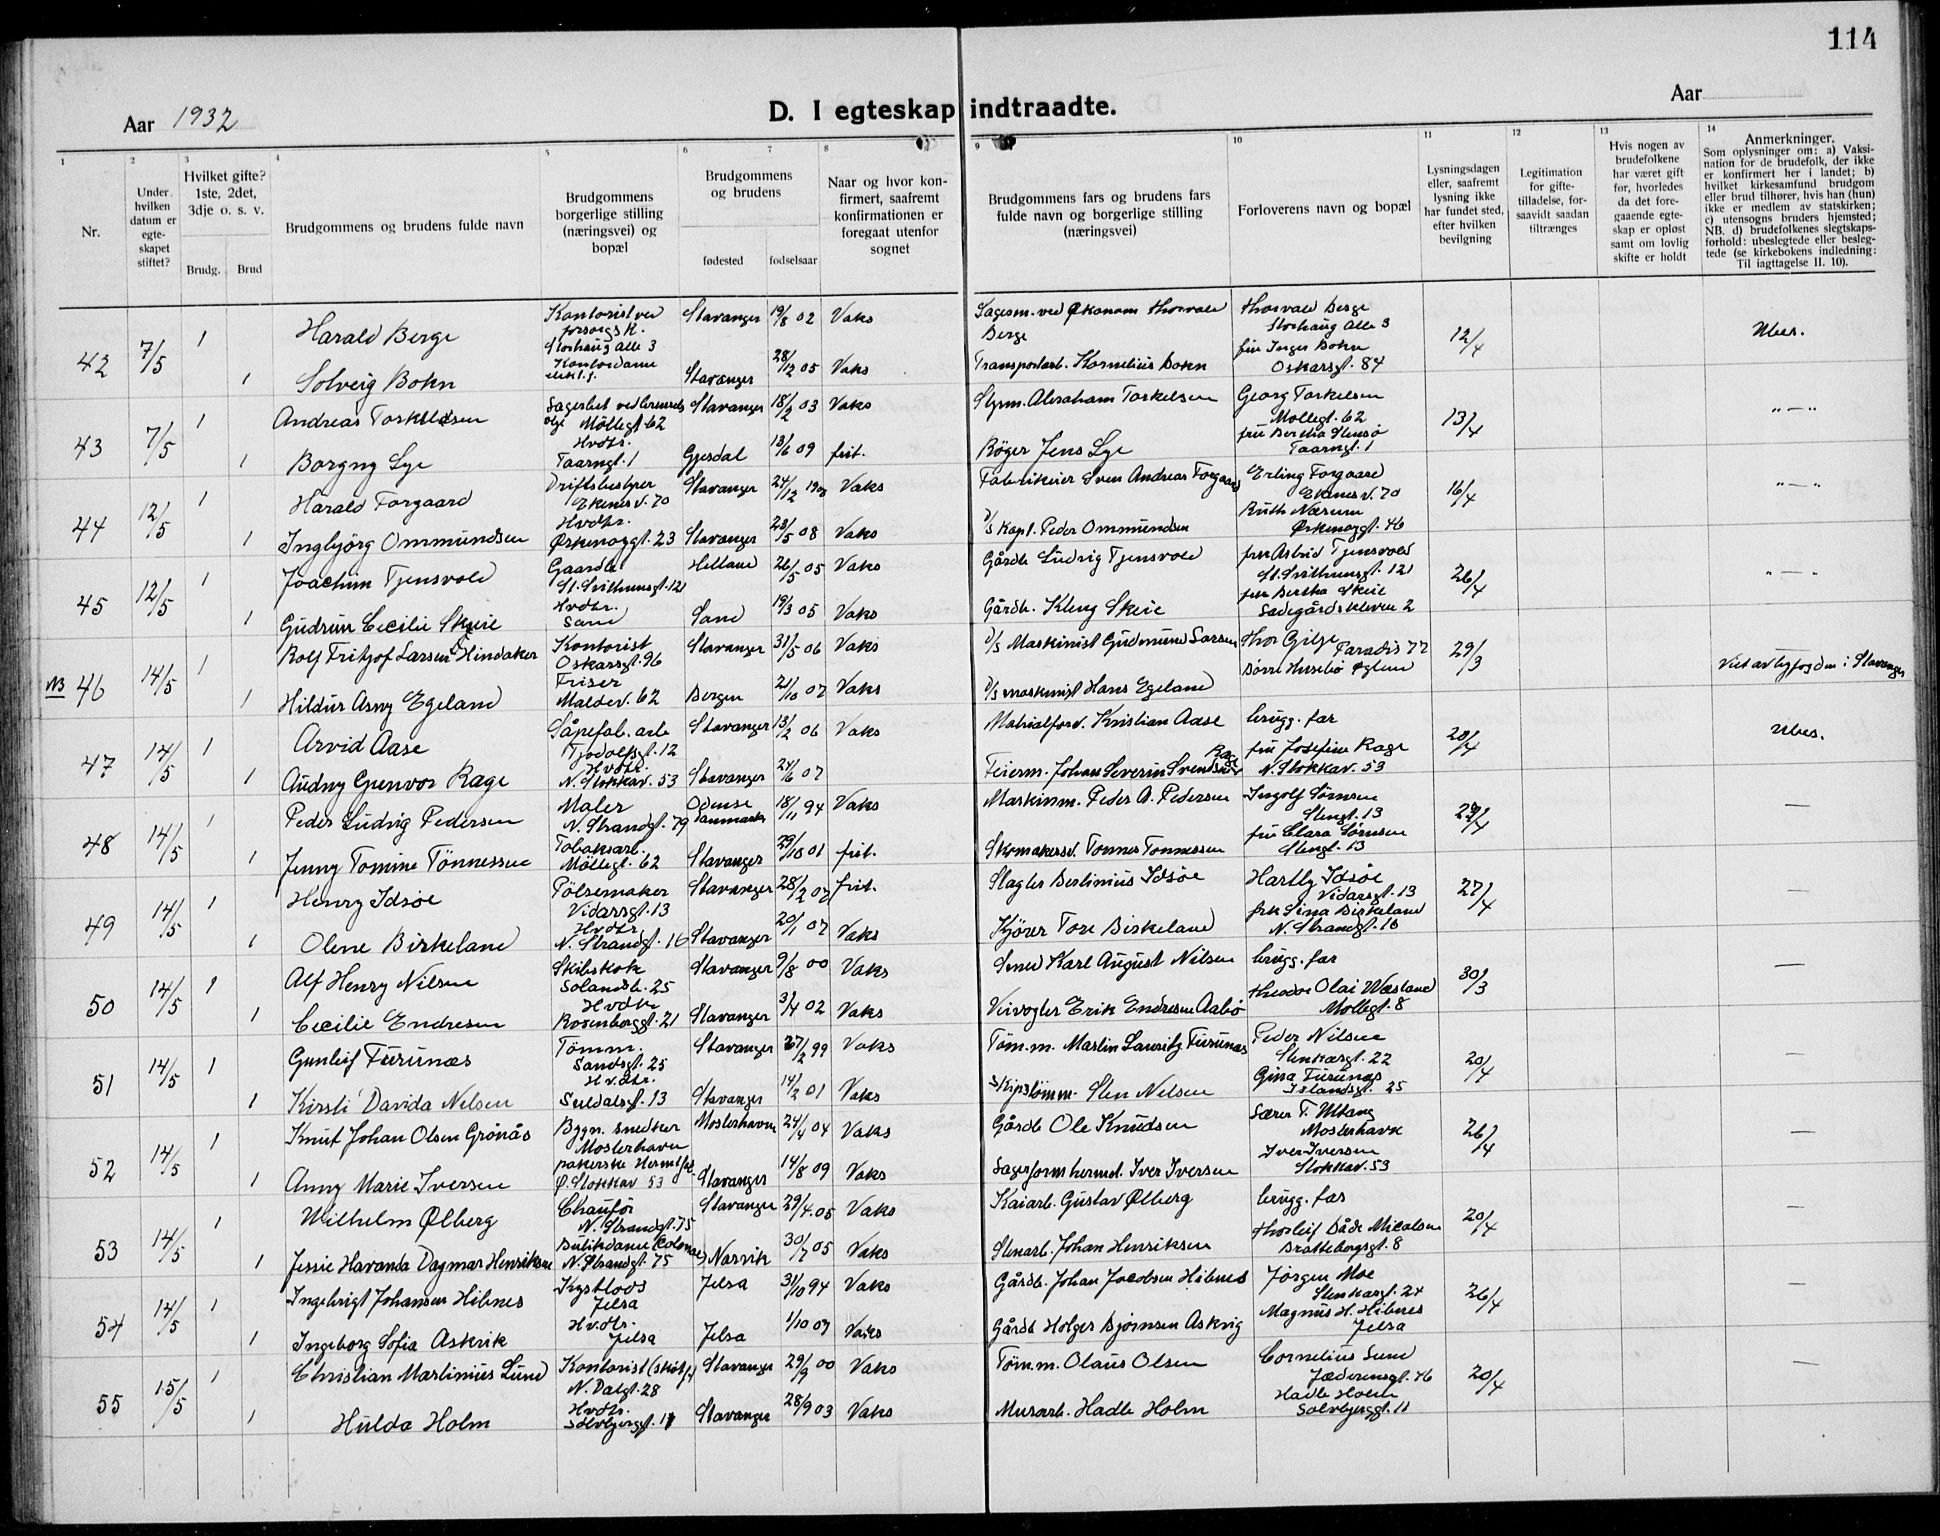 114
Aar 1932
D. I egteskap indtraadte.
Aar
1
2
3
4
5
6
7
8
9
10
11
12
13
14
Nr.
Under hvilken datum er egteskapet stiftet?
Hvilket gifte? 1ste, 2det, 3dje o. s. v.
Brudg.
Brud
Brudgommens og brudens fulde navn
Brudgommens borgerlige stilling (næringsvei) og bopæl
Brudgommens og brudens
fødested
fødselsaar
Naar og hvor konfirmert, saafremt konfirmationen er foregaat utenfor sognet
Brudgommens fars og brudens fars fulde navn og borgerlige stilling (næringsvei)
Forloverens navn og bopæl
Lysningsdagen eller, saafremt lysning ikke har fundet sted, efter hvilken bevilgning
Legitimation for giftetilladelse, forsaavidt saadan tiltrænges
Hvis nogen av brudefolkene har været gift før, hvorledes da det foregaaende egteskap er opløst samt om lovlig skifte er holdt
Anmerkninger.
Som oplysninger om: a) Vaksination for de brudefolk, der ikke er konfirmert her i landet; b) hvilket kirkesamfund brudgom eller brud tilhører, hvis han (hun) ikke er medlem av statskirken; c) utensogns bruders hjemsted; NB. d) brudefolkenes slegtskapsforhold: ubeslegtede eller beslegtede (se kirkebokens indledning: Til iagttagelse II. 10).
42 7/5 1 Harald Berge Kontorist ved forsorgsk. Storhaug Alle 3 Stavanger 19/8 02 Vaks Thorvald Berge Thorvald Berge Storhaug Alle 3 12/4 Ubes.
1 Solveig Bokn Kontordame Stavanger 28/12 05 Vaks Transportarb. Kornelius Bokn fru Inger Bokn Oskarsgt. 84
43 7/5 1 Andreas Torkildsen Møllegt. 62 Stavanger 18/2 03 Vaks Styrm. Abraham Torkelsen Georg Torkelsen Møllegt. 62 13/4 „ — „
1 Borgny Lye Hvdtr. Taarngt. 1 Gjesdal 13/6 09 frit. Røger Jens Lye fru Bertha Stensø Taarngt. 1
44 12/5 1 Harald Forgaard Driftsbestyrer Ekenesv. 70 Stavanger 24/12 1903 Vaks Fabrikeier Sven Andreas Forgaard Erling Forgaard Ekenesv. 70 16/4 „ — „
1 Ingbjørg Ommundsen Hvdtr. Ørkenøygt. 23 Stavanger 23/5 08 Vaks D/S Kapt. Peder Ommundsen Ruth Nærum Ørkenøygt. 46
45 12/5 1 Joachim Tjensvold Gaardb. St. Svithunsgt. 121 Hetland 26/5 05 Vaks Gårdb. Ludvig Tjensvold fru Astrid Tjensvold St. Svithunsgt. 121 26/4 „ — „
1 Gudrun Cecilie Skeie Hvdtr. Sand Sand 19/3 05 Vaks Gårdb. Kleng Skeie fru Bertha Skeie Ladegårdskleven 2
NB 46 14/5 1 Rolf Fritjof Larsen Hindaker Kontorist Oskarsgt. 96 Stavanger 31/5 06 Vaks D/S Maskinist Gudmund Larsen Thor Gilje Paradis 77 29/3 Viet av byfogden i Stavanger
1 Hildur Asny Egeland Friser Maldev. 62 Bergen 21/10 07 Vaks D/S maskinist Hans Egeland
47 14/5 1 Arvid Aase Såpefab. arb Tjodolfsgt. 12 Stavanger 13/2 06 Vaks Matrialforv. Kristian Aase brugg. far 20/4 Ubes.
1 Audny Gunvor Rage Hvdtr. N. Stokkav. 53 Stavanger 24/6 07 Feierm. Johan Severin Svendsen Rage fru Josefine Rage N. Stokkav. 53
48 14/5 1 Peder Ludvig Pedersen Maler N. Strandgt. 79 Odense Danmark 18/11 94 Vaks Maskinm. Peder A. Pedersen Ingolf Sørnsen Stengt. 13 27/4 —
1 Jenny Tomine Tönnessen Tobaksarb. Møllegt. 62 Stavanger 29/10 01 frit. Skomakersv. Tonnes Tonnessen fru Clara Sørnsen Stengt. 13
49 14/5 1 Henry Idsöe Pölsemaker Vidarsgt. 13 Stavanger 28/2 07 frit. Slagter Bertinius Idsöe Hartly Idsöe Vidarsgt. 13 27/4 —
1 Olene Birkeland Hvdtr. N. Strandgt. 16 Stavanger 20/1 07 Vaks Kjörer Tore Birkeland frk Sina Birkeland N. Strandgt. 16
50 14/5 1 Alf Henry Nilsen Skibskok 25 Stavanger 9/8 00 Vaks Smed Karl August Nilsen brugg. far 30/3 —
1 Cecilie Endresen Hvdtr Rosenberggt. 21 Stavanger 3/4 02 Vaks Veivogter Erik Endresen Aabø Theodor Olai Wæstand Møllegt. 8
51 14/5 1 Gunleif Furunæs Tömm. Sandsgt. 25 Stavanger 27/2 99 Vaks Töm.m. Martin Lauritz Furunæs Peder Nilsen Stenkargt. 22 20/4 —
1 Kirsti Davida Nelsen Hvdtr. Suldalsgt. 13 Stavanger 14/2 01 Vaks Skipstømm. Sten Nelsen Gina Furunæs Islandsgt. 25
52 14/5 1 Knut Johan Olsen Grönås Bygn. snedker Mosterhavn Mosterhavn 24/4 04 Vaks Gårdb Ole Knudsen Mosterhavn 26/4 —
1 Anny Marie Iversen pakerske Ø. Stokkav 53 Stavanger 14/8 09 Vaks Iver Iversen Iver Iversen Stokkav. 53
53 14/5 1 Wilhelm Ølberg Chauför N. Strandgt. 75 Stavanger 29/4 05 Vaks Kaiarb. Gustav Ølberg brugg. far 20/4 —
1 Jessie Havanda Dagmar Henriksen Butikdame (Colonial) N. Strandgt. 75 Narvik 30/7 05 Vaks Stenarb. Johan Henriksen Thorleif Dåde Micalsen Brattebergsgt. 8
54 14/5 1 Ingebrigt Johansen Hibnes Kystlods Jelsa Jelsa 31/10 94 Vaks Gårdb. Johan Jacobsen Hibnes Jörgen Moe Stenkargt. 24 26/4 —
1 Ingeborg Sofia Askvik Hvdtr. Jelsa Jelsa 1/10 07 Vaks Gårdb Holger Bjørnsen Askvig Magnus H. Hibnes Jelsa
55 15/5 1 Christian Martinius Lund Kontorist N. Dalgt. 28 Stavanger 29/9 00 Vaks Töm.m. Olaus Olsen Cornelius Lund Jæderensgt. 46 20/4 —
1 Hulda Holm Hvdtr. Sølvbergsgt. 11 Stavanger 28/9 03 Vaks Murarb. Hadle Holm Hadle Holm Sølvberggt. 11